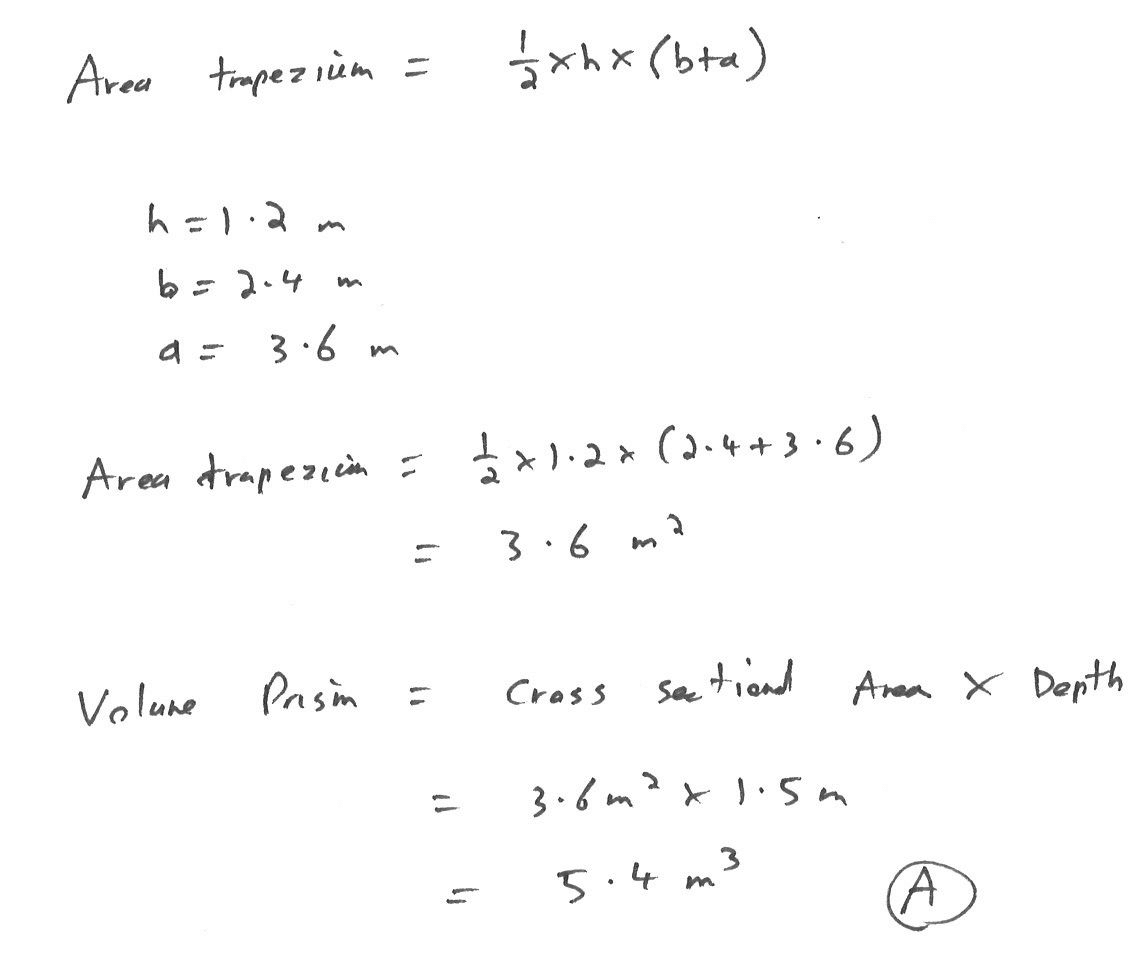 Area trapezium = 1/2 × h × (b+a)
h = 1.2 m
b = 2.4 m
a = 3.6 m
Area trapezium = 1/2 × 1.2 × (2.4 + 3.6)
= 3.6 m²
Volume Prism = Cross sectional Area × Depth
= 3.6 m² × 1.5 m
= 5.4 m³ A